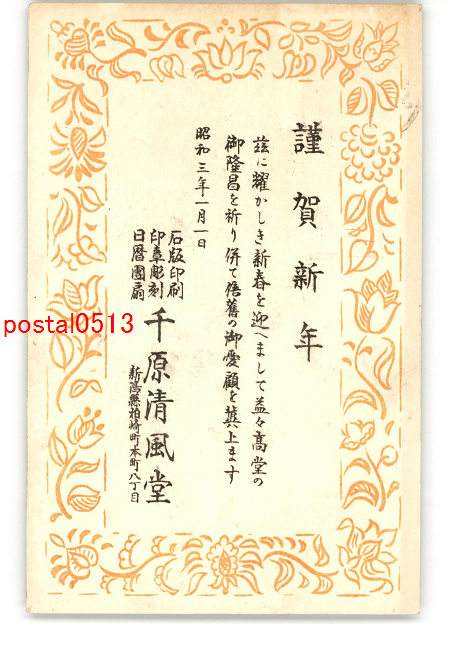 謹賀新年
茲に耀かしき新春を迎へまして益々高堂の
御隆昌を祈り併て倍舊の御愛顧を冀上ます
昭和三年一月一日
石版印刷
印章彫刻
日暦團扇
千原清風堂
新潟縣柏崎町本町八丁目
postal0513